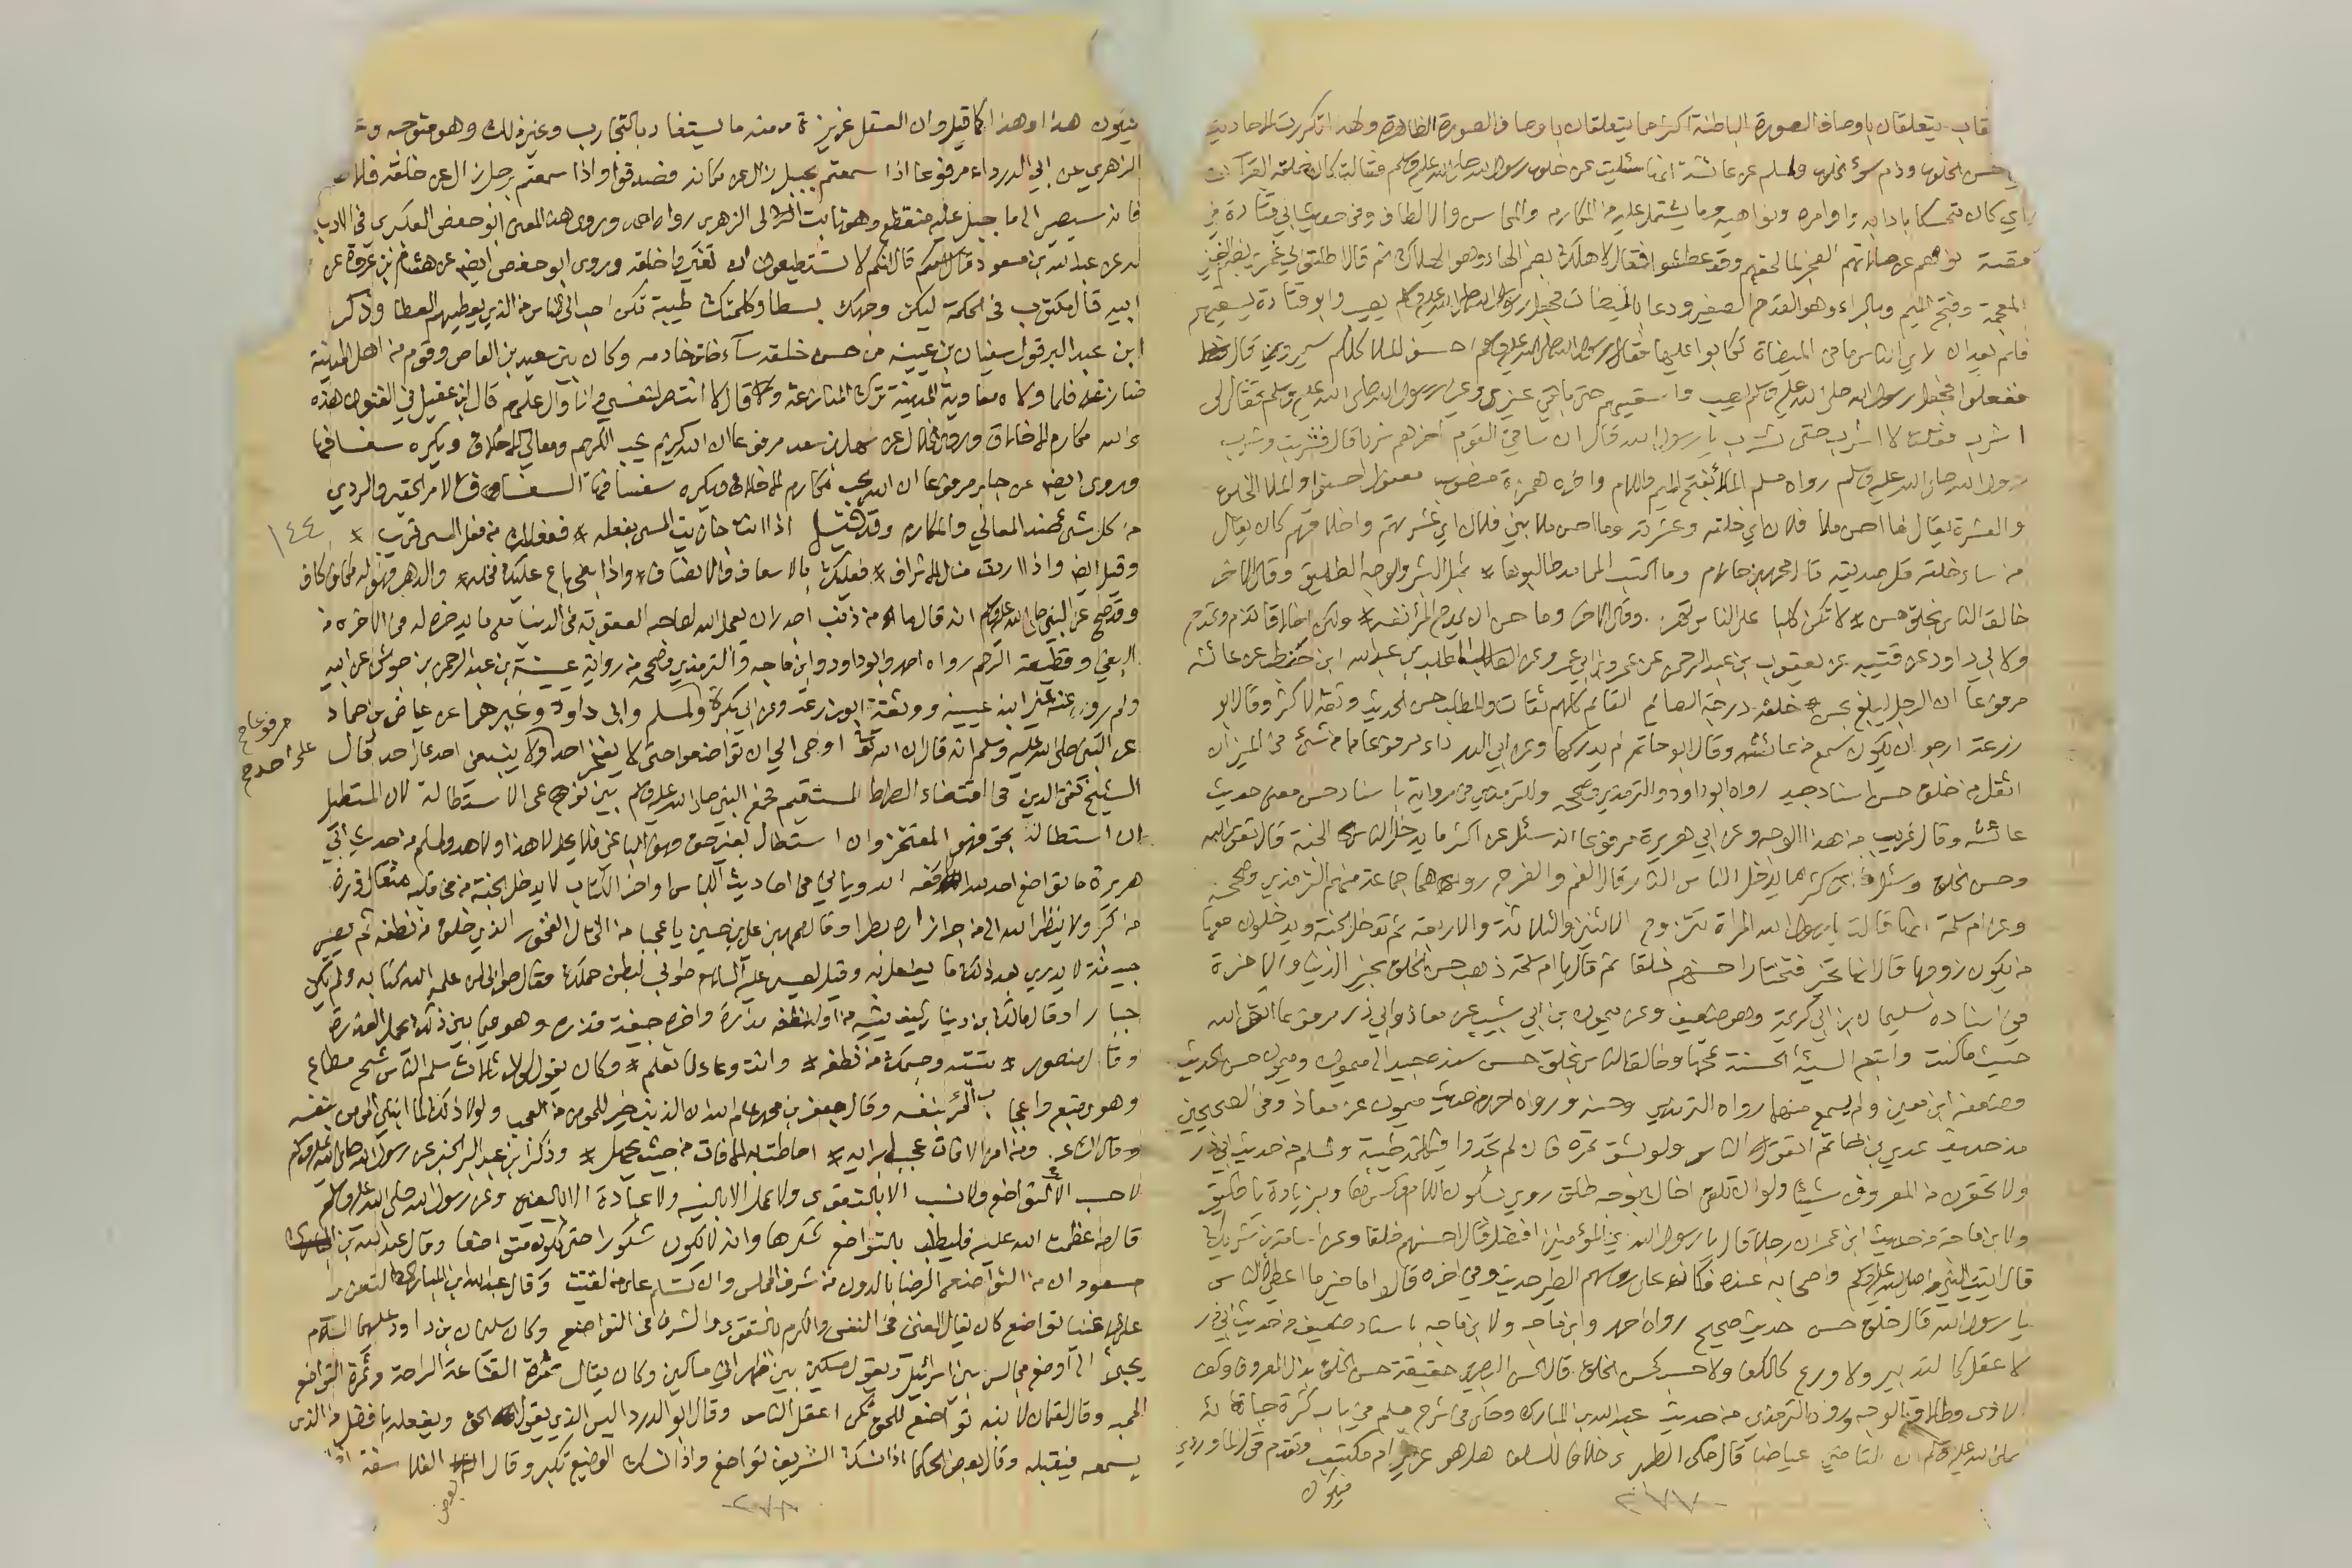 يتعلقان باوصاف الصورة الباطنة اكثر مما يتعلقان باوصاف الصورة الظاهرة ولهذا تكررت الاحاديث
حسن الخلق وذم سوء الخلق ولمسلم عن عائشة انها سئلت عن خلق رسول الله صلى الله عليه وسلم فقالت كان خلقه القرآن
اي كان متمسكا بادابه واوامره ونواهيه وما يشتمل عليه من المكارم والمحاسن والالطاف وفي حديث ابي قتادة في
قصة نومهم عن صلاتهم الفجر لما لحقهم وقد عطشوا فقال لا هلك بضم الهاء وهو الهلاك ثم قال اطلقوا لي غمري بضم الغين
المعجمة وفتح الميم وبالراء وهو القدح الصغير ودعا بالميضات فجعل رسول الله صلى الله عليه وسلم يصب وابو قتادة يسقيهم
فلم يعد ان راى الناس ما في الميضاة تكابوا عليها فقال رسول الله صلى الله عليه وسلم احسنوا الملا كلكم سيروى قال
ففعلوا فجعل رسول الله صلى الله عليه وسلم يصب واسقيهم حتى ما بقي غيري وغير رسول الله صلى الله عليه وسلم فقال لي
اشرب فقلت لا اشرب حتى تشرب يا رسول الله قال ان ساقي القوم اخرهم شربا قال فشربت وشرب
رسول الله صلى الله عليه وسلم رواه مسلم الملأ بفتح الميم واللام واخره همزة منصوب مفعول احسنوا والملا الخلق
والعشرة يقال ما احسن ملا فلان اي خلقه وعشرته وما احسن ملا بني فلان اي عشرتهم واخلاقهم كان يقال
من ساء خلقه قل صديقه قال محمد بن حازم وما اكتسب المحامد طالبوها * بمثل البشر والوجه الطليق وقال الاخر
خالق الناس بخلق حسن * لا تكن كلبا على الناس تهر وقال الاخر وما حسن ان يمدح المرء نفسه * ولكن اخلاقا تذم وتمدح
ولابي داود عن قتيبه عن يعقوب بن عبد الرحمن عن عمرو بن ابي عمرو عن المطلب بن عبد الله ابن حنطب عن عائشة
مرفوعا ان الرجل ليبلغ بحسن خلقه درجة الصائم القائم كلهم ثقات والمطلب حسن الحديث وثقه الاكثر وقال ابو
زرعة ارجو ان يكون سمع من عائشة وقال ابو حاتم لم يدركها وعن ابي الدرداء مرفوعا ما من شئ في الميزان
اثقل من خلق حسن اسناد جيد رواه ابو داود والترمذي وصححه وللترمذي في رواية باسناد حسن معنى حديث
عائشة وقال غريب من هذا الوجه وعن ابي هريرة مرفوعا انه سئل عن اكثر ما يدخل الناس الجنة قال تقوى الله
وحسن الخلق وسئل عن اكثر ما يدخل الناس النار قال الفم والفرج رواهما جماعة منهم الترمذي وصححه
وعن ام سلمة انها قالت يا رسول الله المراة تتزوج الاثنين والثلاثة والاربعة ثم تدخل الجنة ويدخلون معها
من يكون زوجها قال انها تخير فتختار احسنهم خلقا ثم قال يا ام سلمة ذهب حسن الخلق بخير الدنيا والاخرة
في اسناده سليمان بن ابي كريمة وهو ضعيف وعن ميمون بن ابي شبيب عن معاذ وابي ذر مرفوعا اتق الله
حيث ما كنت واتبع السيئة الحسنة تمحها وخالق الناس بخلق حسن سنده جيد الى ميمون وميمون حسن الحديث
وضعفه ابن معين ولم يسمع منهما رواه الترمذي وحسنه ورواه احمد من حديث ميمون عن معاذ وفي الصحيحين
من حديث عدي بن حاتم اتقوا النار ولو بشق تمرة فان لم تجدوا فبكلمة طيبة ولمسلم من حديث ابي ذر
ولا تحقرن من المعروف شيئا ولو ان تلقى اخاك بوجه طلق روي بسكون اللام وكسرها وبزيادة يا طليق
ولابن ماجة من حديث ابن عمر ان رجلا قال يا رسول الله اي المؤمنين افضل قال احسنهم خلقا وعن اسامة بن شريك
قال اتيت النبي صلى الله عليه وسلم واصحابه عنده فكانه على رؤسهم الطير حديث وفي اخره قالوا ما خير ما اعطي الناس
يا رسول الله قال خلق حسن حديث صحيح رواه احمد وابن ماجه ولابن ماجه باسناد ضعيف من حديث ابي ذر
لا عقل كالتدبير ولا ورع كالكف ولا حسب كحسن الخلق قال الحسن البصري حقيقة حسن الخلق بذل المعروف وكف
الاذى وطلاقة الوجه ورواه الترمذي من حديث عبد الله بن المبارك وحكى في شرح مسلم في باب كثرة حيائه
صلى الله عليه وسلم ان القاضي عياضا قال حكى الطبري خلافا للسلف هل هو غريزي ام مكتسب وتقدم قول الماوردي
فيكون
٣٧٧
فيكون هذا وهذا كما قيل وان العقل غريزة ومنه ما يستفاد بالتجارب وغير ذلك وهو متوجه
الزهري عن ابي الدرداء مرفوعا اذا سمعتم بجبل زال عن مكانه فصدقوا واذا سمعتم برجل زال عن خلقه فلا
فانه سيصير الى ما جبل عليه منقطع وهو ثابت الى الزهري رواه احمد وروى هذا المعنى ابو حفص العكبري في الادب
له عن عبد الله بن مسعود قال انكم لا تستطيعون ان تغيروا خلقه وروى ابو حفص ايضا عن هشام بن عروة عن
ابيه قال مكتوب في الحكمة ليكن وجهك بسطا وكلمتك طيبة تكن احب الى الناس من الذي يعطيهم العطا وذكر
ابن عبد البر قول سفيان بن عيينه من حسن خلقه ساء خلق خادمه وكان بين سعيد بن العاص وقوم من اهل المدينة
منازعة فلما ولاه معاوية المدينة ترك المنازعة وقال لا انتصر لنفسي وانا وال عليهم قال ابن عقيل في الفنون هذه
والله مكارم الاخلاق وروى الخلال عن سهل بن سعد مرفوعا ان الله كريم يحب الكرم ومعالي الاخلاق ويكره سفسافها
وروى ايضا عن جابر مرفوعا ان الله يحب مكارم الاخلاق ويكره سفسافها السفساف الامر الحقير والردي
من كل شئ ضد المعالي والمكارم وقد قيل اذا انت جازيت المسى بفعله * ففعلك من فعل المسى قريب *
١٤٤
وقيل ايضا واذا اردت منازل الاشراف * فعليك بالاسعاف والانصاف * واذا بغى باغ عليك فخله * والدهر فهو له مكاف كاف
وقد صح عن النبي صلى الله عليه وسلم انه قال ما من ذنب اجدر ان يعجل الله لصاحبه العقوبة في الدنيا مع ما يدخره له في الاخرة من
البغي وقطيعة الرحم رواه احمد وابو داود وابن ماجه والترمذي وصححه من رواية عيينة بن عبد الرحمن بن جوشن عن ابيه
ولم يرو عنه غير ابنه عيينه ووثقه ابو زرعة وعن ابي بكرة ولمسلم وابي داود وغيرهما عن عياض بن حماد
مرفوعا صح
عن النبي صلى الله عليه وسلم انه قال ان الله تعالى اوحى الي ان تواضعوا حتى لا يفخر احد ولا يبغى احد على احد قال
على احد صح
الشيخ تقي الدين في اقتضاء الصراط المستقيم فجمع النبي صلى الله عليه وسلم بين نوعي الاستطالة لان المستطيل
ان استطال بحق فهو المفتخر وان استطال بغير حق فهو الباغي فلا يحل لا هذا ولا هذا ولمسلم من حديث ابي
هريرة ما تواضع احد لله الا رفعه الله وياتي في احاديث اللباس اواخر الكتاب لا يدخل الجنة من في قلبه مثقال ذرة
من كبر ولا ينظر الله الى من جر ازاره بطرا وقال محمد بن علي بن حسين يا عجبا من المختال الفخور الذي خلق من نطفة ثم يصير
جيفة لا يدري بعد ذلك ما يفعل به وقيل لعيسى عليه السلام طوبى لبطن حملك فقال طوبى لمن علمه الله كتابه ولم يكن
جبارا وقال مالك بن دينار كيف يتيه من اوله نطفة مذرة واخره جيفة قذرة وهو فيما بين ذلك يحمل العذرة
وقال منصور * تتيه وجسمك من نطفة * وانت وعاء لما تعلم * وكان يقول لولا ثلاث سلم الناس شح مطاع
وهوى متبع واعجاب المرء بنفسه وقال جعفر بن محمد علم الله ان الذنب خير للمؤمن من العجب ولولا ذلك لما ابتلي مؤمن بذنب
وقال الشاعر ومن امن الافات عجبا برايه * احاطت به الافات من حيث يجهل * وذكر ابن عبد البر الخبر عن رسول الله صلى الله عليه وسلم
لا حسب الا التواضع ولا نسب الا بالتقوى ولا عمل الا بالنية ولا عبادة الا باليقين وعن رسول الله صلى الله عليه وسلم
قال من عظمت نعمة الله عليه فليطلب بالتواضع شكرها وانه لا يكون شكورا حتى يكون متواضعا وقال عبد الله بن
مسعود ان من التواضع الرضا بالدون من شرف المجلس وان تسلم على من لقيت وقال عبد الله ابن المبارك التعزز
على الاغنيا تواضع كان يقال الغنى في النفس والكرم بالتقوى والشرف في التواضع وكان سليمان بن داود عليهما السلام
يجيء الى اوضع مجالس بني اسرائيل ويقول مسكين بين ظهراني مساكين وكان يقال ثمرة القناعة الراحة وثمرة التواضع
المحبه وقال لقمان لابنه تواضع للحق تكن اعقل الناس وقال ابو الدرداء ليس الذي يقول الحق ويفعله بافضل من الذي
يسمعه فيقبله وقال بعض الحكما اذا نسك الشريف تواضع واذا نسك الوضيع تكبر وقال الفلاسفة
بعض
٣٧٨